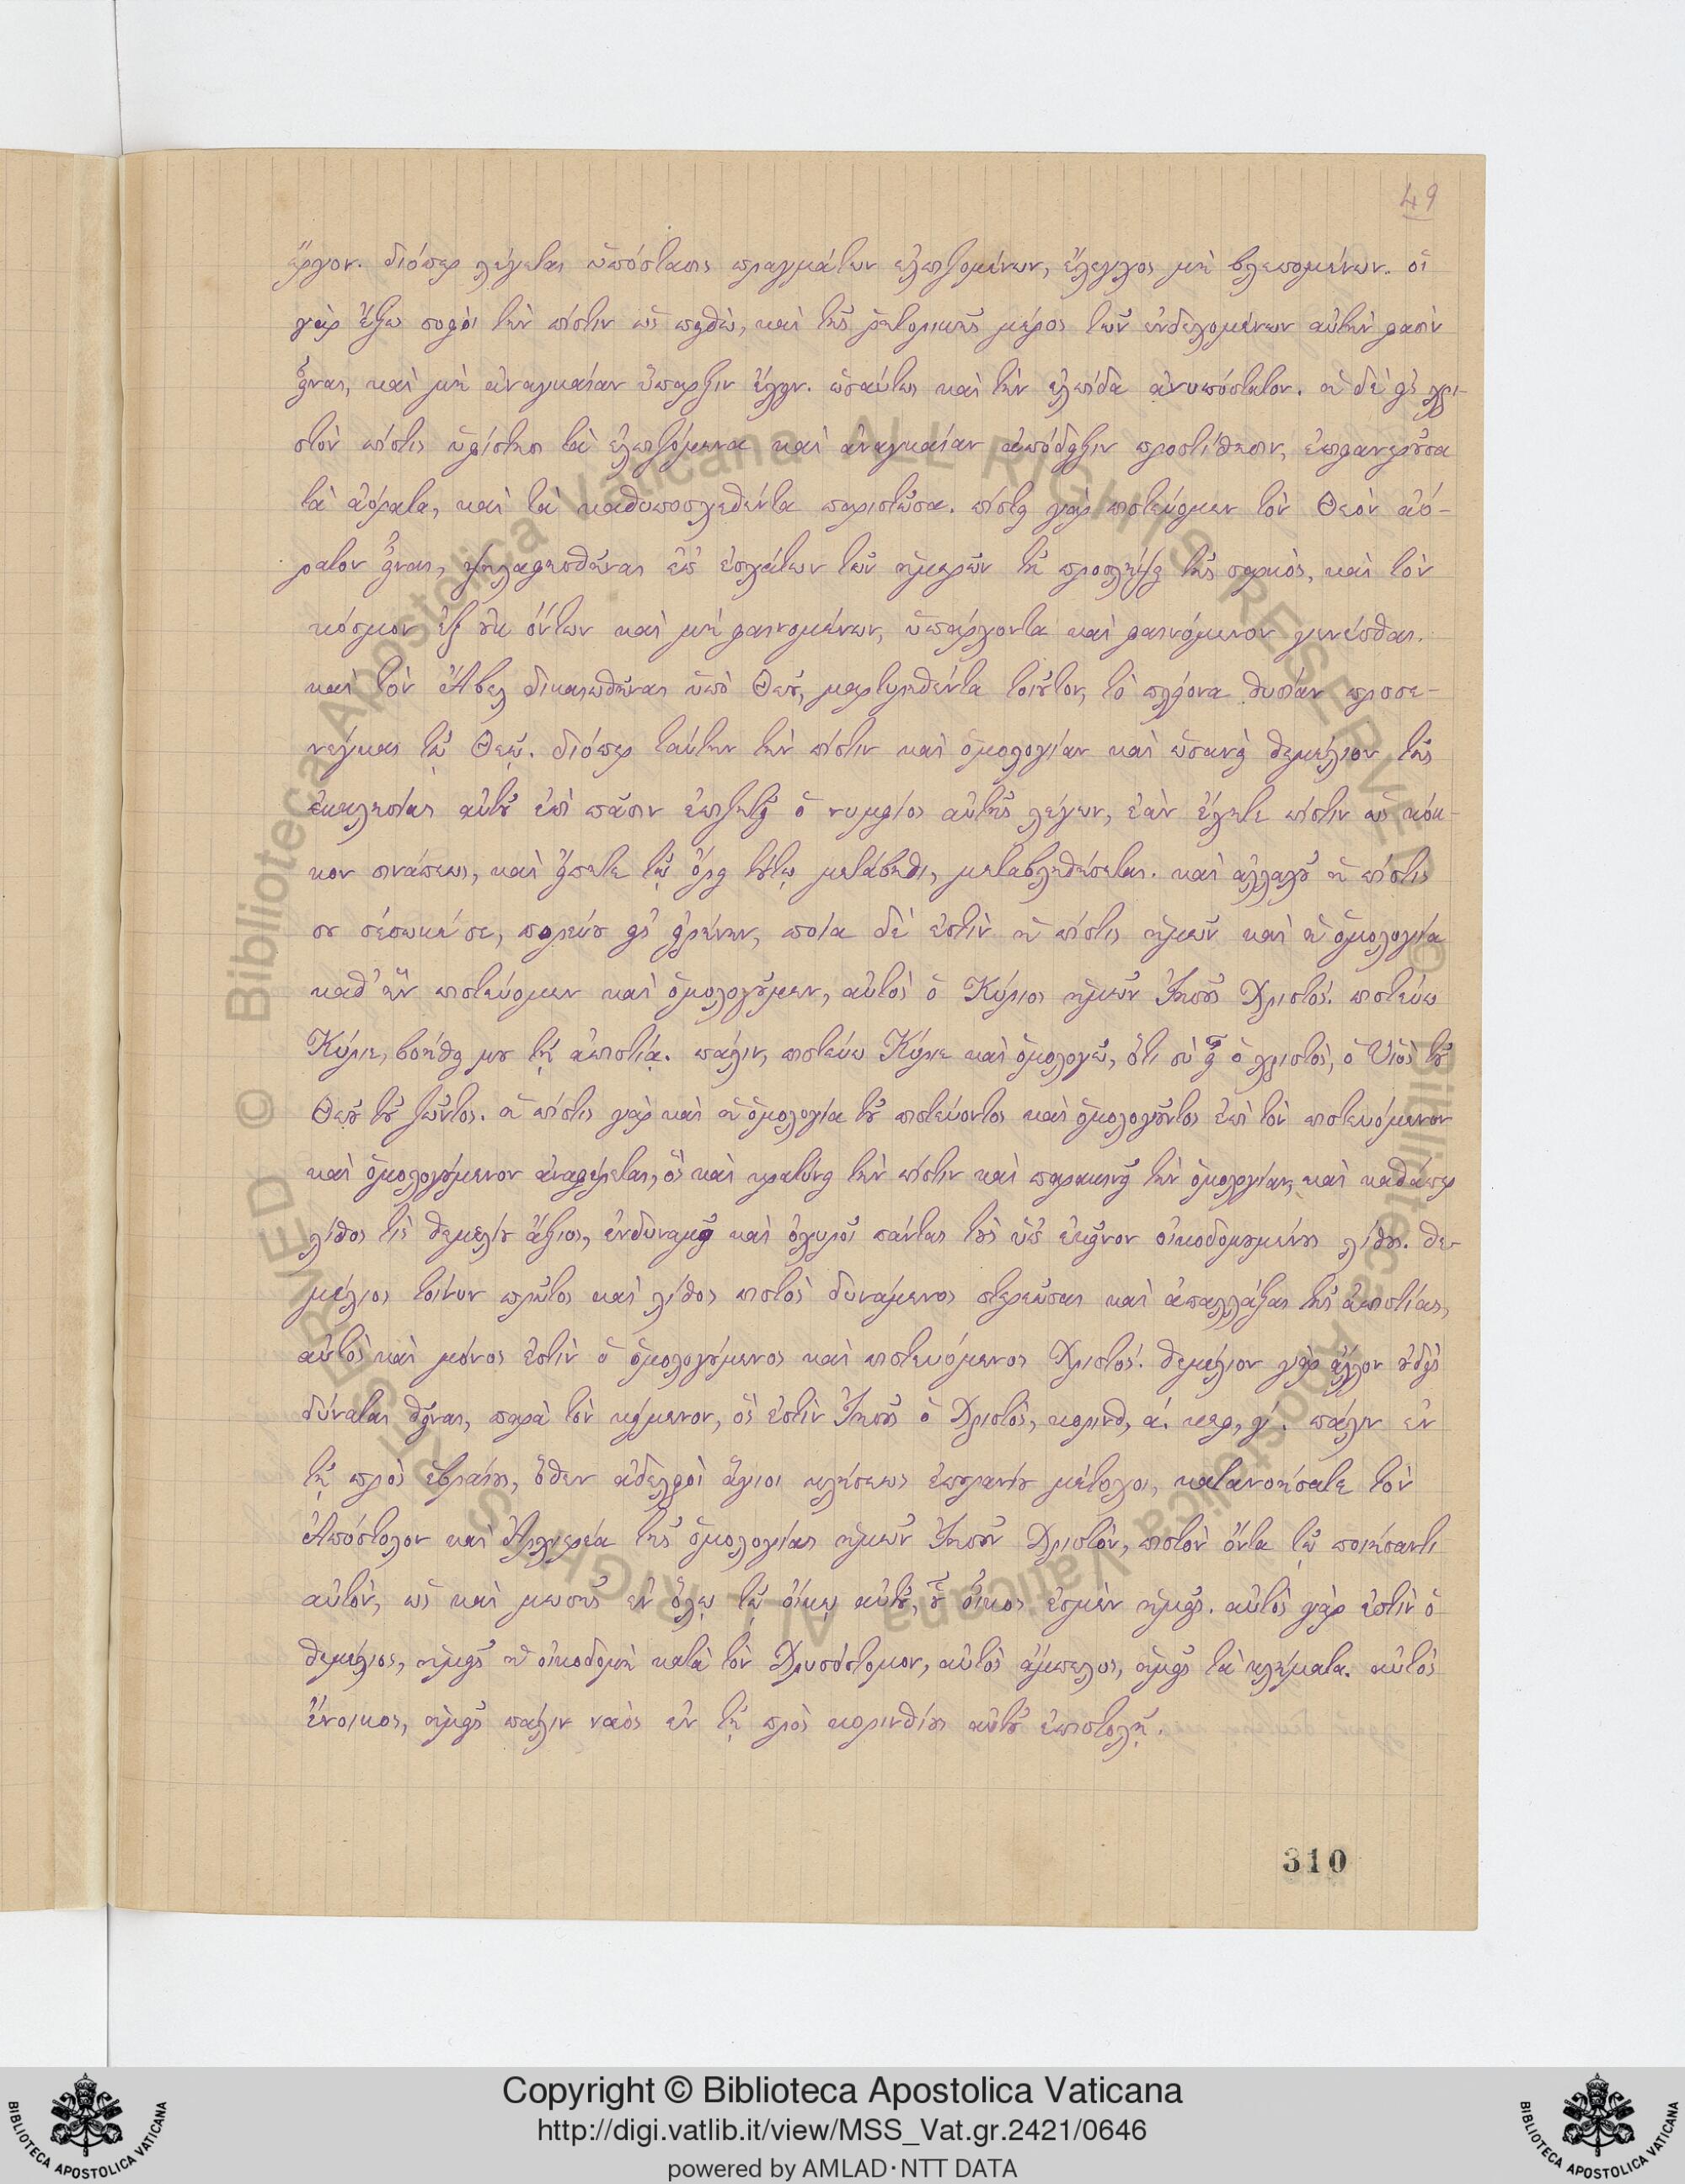 49
ἔργον. διόπερ λέγεται ὑπόστασις πραγμάτων ἐλπιζομένων, ἔλεγχος μὴ βλεπομένων. οἱ
γὰρ ἔξω σοφοὶ τὴν πίστιν ὡς πειθὼ, καὶ τῆς ῥητορικῆς μέρος τῶν ἐνδεχομένων αὐτὴν φασὶν
εἶναι, καὶ μὴ ἀναγκαίαν ὕπαρξιν ἔχειν. ὡσαύτως καὶ τὴν ἐλπίδα ἀνυπόστατον. ἡ δὲ εἰς χρι-
στὸν πίστις ὑφίστησι τὰ ἐλπιζόμενα καὶ ἀναγκαίαν ἀπόδειξιν προστίθησιν, ἐπιφανεροῦσα
τὰ ἀόρατα, καὶ τὰ καθυποσχεθέντα παριστῶσα. πίστει γὰρ πιστεύομεν τὸν Θεὸν ἀό-
ρατον εἶναι, ψηλαφηθῆναι ἐπ' ἐσχάτων τῶν ἡμερῶν τῇ προσλήψει τῆς σαρκὸς, καὶ τὸν
κόσμον ἐξ οὐκ ὄντων καὶ μὴ φαινομένων, ὑπάρχοντα καὶ φαινόμενον γενέσθαι.
καὶ τὸν Ἄβελ δικαιωθῆναι ὑπὸ Θεοῦ, μαρτυρηθέντα τοιοῦτον, τὸ πλείονα θυσίαν προσε-
νέγκαι τῷ Θεῷ. διόπερ ταύτην τὴν πίστιν καὶ ὁμολογίαν καὶ ὡσανεὶ θεμέλιον τῆς
ἐκκλησίας αὐτοῦ ἐπὶ πᾶσιν ἐπιζητεῖ ὁ νυμφίος αὐτῆς λέγων, ἐὰν ἔχητε πίστιν ὡς κόκ-
κον σινάπεως, καὶ εἴπητε τῷ ὄρει τούτῳ μετάβηθι, μεταβληθήσεται. καὶ ἀλλαχοῦ ἡ πίστις
σου σέσωκέ σε, πορεύου εἰς εἰρήνην, ποία δέ ἐστὶν ἡ πίστις ἡμῶν καὶ ἡ ὁμολογία
καθ' ἣν πιστεύομεν καὶ ὁμολογοῦμεν, αὐτὸς ὁ Κύριος ἡμῶν Ἰησοῦς Χριστός. πιστεύω
Κύριε, βοήθει μου τῇ ἀπιστίᾳ. πάλιν, πιστεύω Κύριε καὶ ὁμολογῶ, ὅτι σὺ εἶ ὁ χριστὸς, ὁ Υἱὸς τοῦ
Θεοῦ τοῦ ζῶντος. ἡ πίστις γὰρ καὶ ἡ ὁμολογία τοῦ πιστεύοντος καὶ ὁμολογοῦντος ἐπὶ τὸν πιστευόμενον
καὶ ὁμολογούμενον ἀναφέρεται, ὃς καὶ κρατύνει τὴν πίστιν καὶ παρακινεῖ τὴν ὁμολογίαν, καὶ καθάπερ
λίθος τὶς θεμελίου ἄξιος, ἐνδυναμοῖ καὶ ὀχυροῖ πάντας τοὺς ὑπ' ἐκεῖνον οἰκοδομουμένους λίθους. θε-
μέλιος τοίνυν πρῶτος καὶ λίθος πιστὸς δυνάμενος στερεῶσαι καὶ ἀπαλλάξαι τῆς ἀπιστίας,
αὐτὸς καὶ μόνος ἐστὶν ὁ ὁμολογούμενος καὶ πιστευόμενος Χριστός. θεμέλιον γὰρ ἄλλον οὐδεὶς
δύναται θεῖναι, παρὰ τὸν κείμενον, ὅς ἐστὶν Ἰησοῦς ὁ Χριστὸς, κορινθ, ά. κεφ, γ΄. πάλιν ἐν
τῇ πρὸς ἑβραίους, ὅθεν ἀδελφοὶ ἅγιοι κλήσεως ἐπουρανίου μέτοχοι, κατανοήσατε τὸν
Ἀπόστολον καὶ Ἀρχιερέα τῆς ὁμολογίας ἡμῶν Ἰησοῦν Χριστὸν, πιστὸν ὄντα τῷ ποιήσαντι
αὐτὸν, ὡς καὶ μωσῆς ἐν ὅλῳ τῷ οἴκῳ αὐτοῦ, οὗ οἶκος ἐσμὲν ἡμεῖς. αὐτὸς γάρ ἐστὶν ὁ
θεμέλιος, ἡμεῖς ἡ οἰκοδομὴ κατὰ τὸν Χρυσόστομον, αὐτὸς ἄμπελος, ἡμεῖς τὰ κλήματα. αὐτὸς
ἔνοικος, ἡμεῖς πάλιν ναὸς ἐν τῇ πρὸς κορινθίους αὐτοῦ ἐπιστολῇ.
310
© Biblioteca Apostolica Vaticana ALL RIGHTS RESERVED
Copyright © Biblioteca Apostolica Vaticana
http://digi.vatlib.it/view/MSS_Vat.gr.2421/0646
powered by AMLAD·NTT DATA
BIBLIOTECA APOSTOLICA VATICANA
BIBLIOTECA APOSTOLICA VATICANA